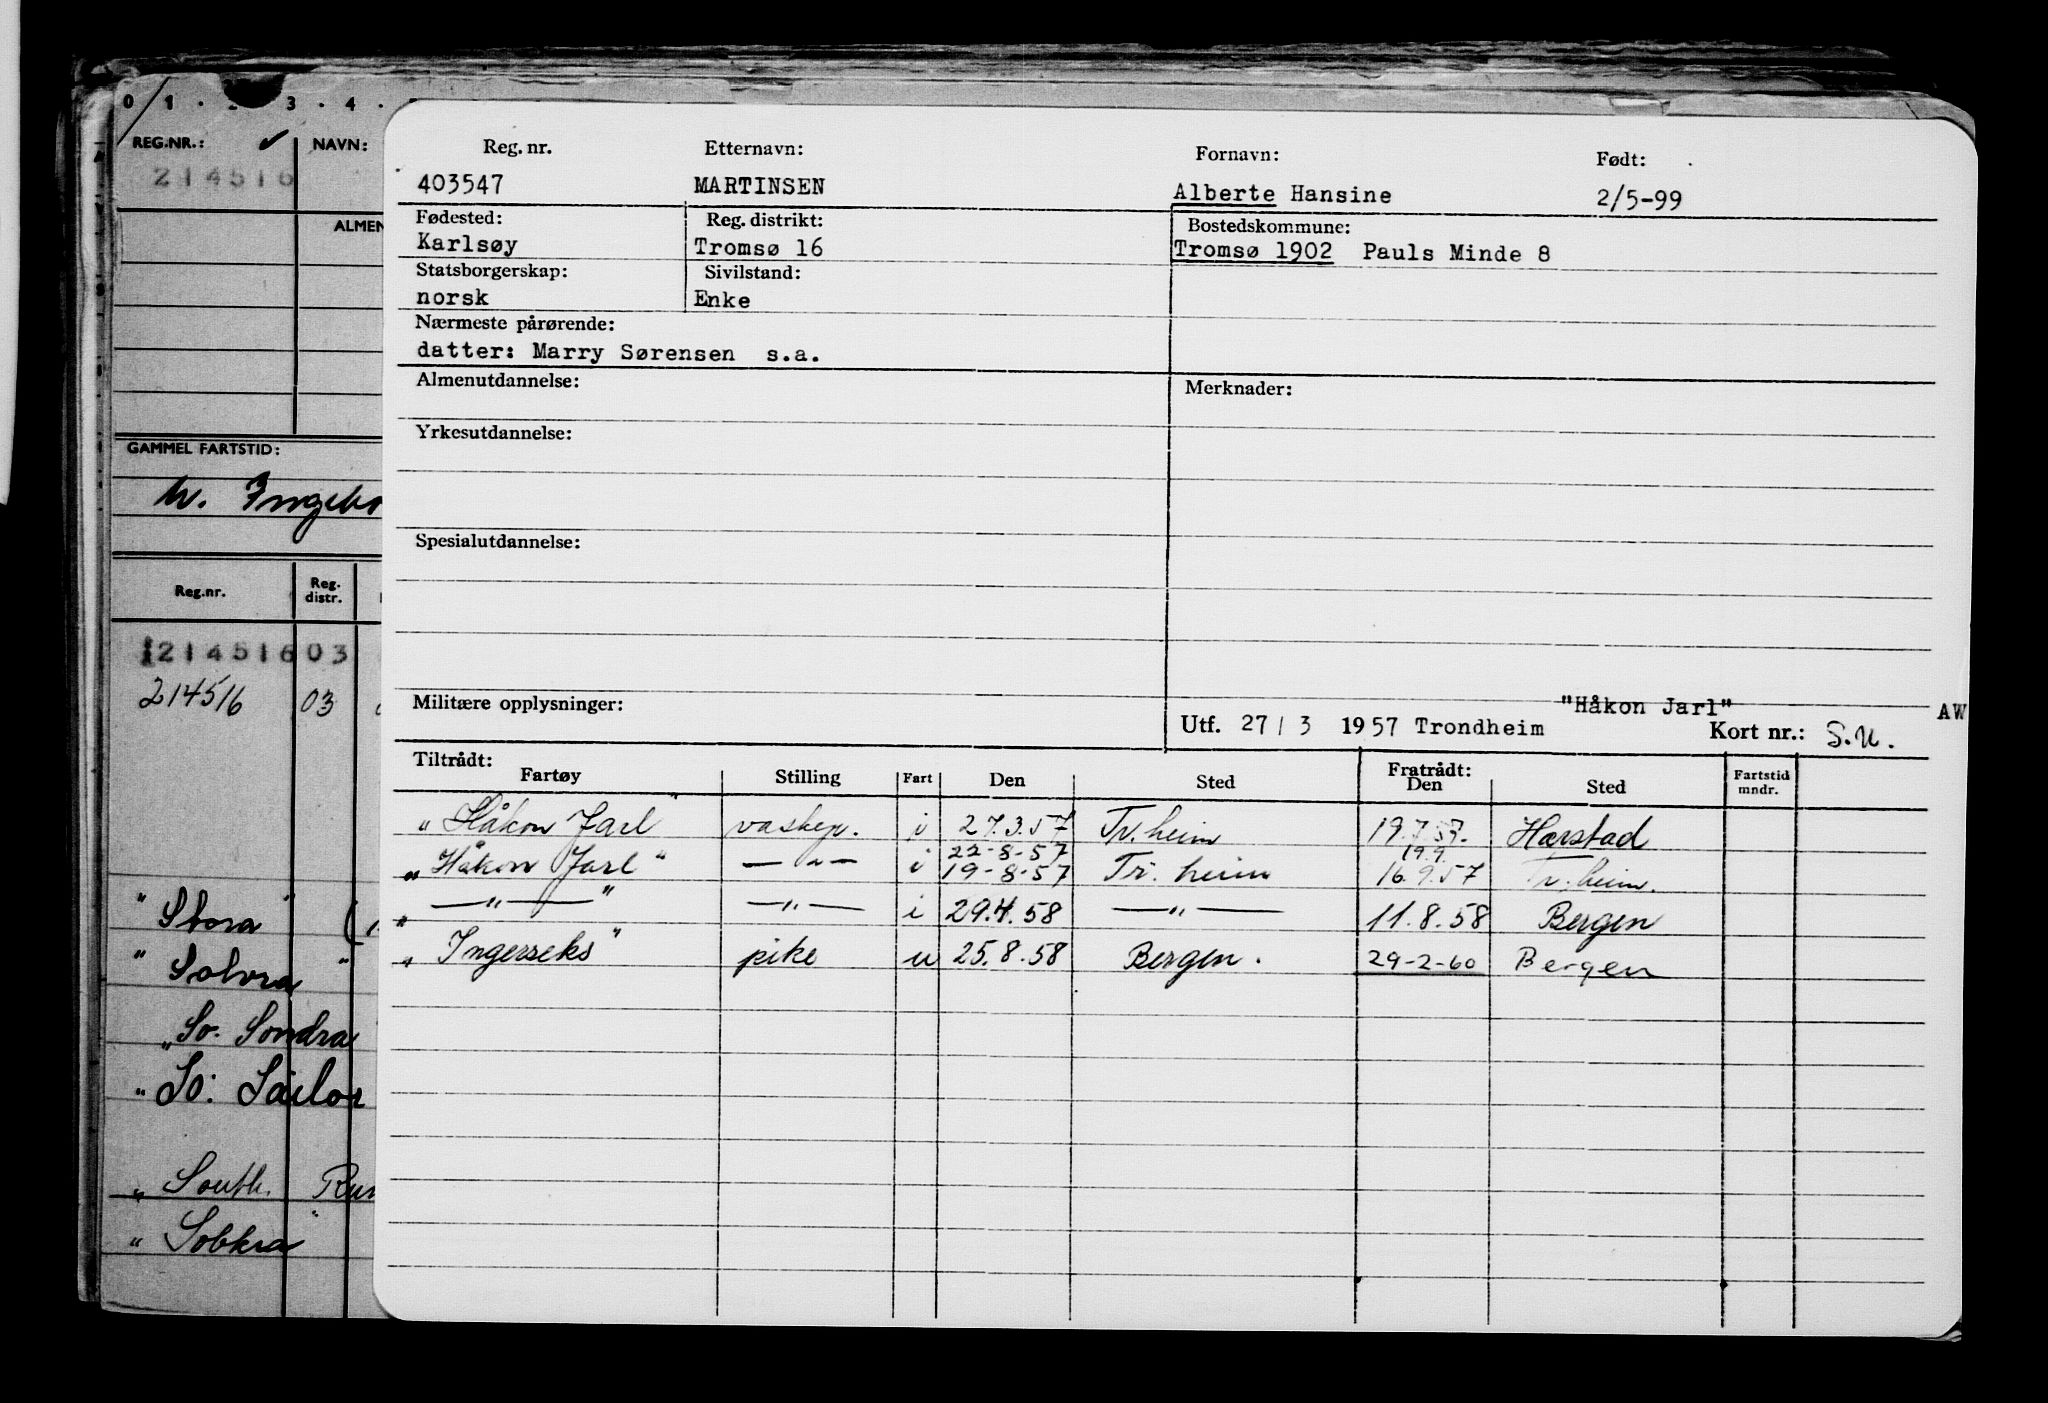 0 1 · 2 · 3 · 4 ·
REG.NR.: ✓ NAVN:
214516
ALMEN
GAMMEL FARTSTID:
Reg.nr. Reg. distr.
214516 03
214516 03
"Stora"
"Solvra"
"So. Sondra
"So: Sailor
"South.
"Sobkra"
Reg. nr. Etternavn: Fornavn: Født:
403547 MARTINSEN Alberte Hansine 2/5-99
Fødested: Reg. distrikt: Bostedskommune:
Karlsøy Tromsø 16 Tromsø 1902 Pauls Minde 8
Statsborgerskap: Sivilstand:
norsk Enke
Nærmeste pårørende:
datter: Marry Sørensen s.a.
Almenutdannelse: Merknader:
Yrkesutdannelse:
Spesialutdannelse:
Militære opplysninger: "Håkon Jarl" AW
Utf. 27/3 1957 Trondheim Kort nr.: S.U.
Tiltrådt: Fratrådt:
Fartøy Stilling Fart Den Sted Den Sted Fartstid mndr.
"Håkon Jarl" vaskep. i 27.3.57 Tr.heim 19.7.57. Harstad
22-8-57 19.9.
"Håkon Jarl" —"— i 19-8-57 Tr. heim 16.9.57 Tr.heim.
"—"—" —"— i 29.4.58 —"— 11.8.58 Bergen
"Ingerseks" pike u 25.8.58 Bergen. 29-2-60 Bergen